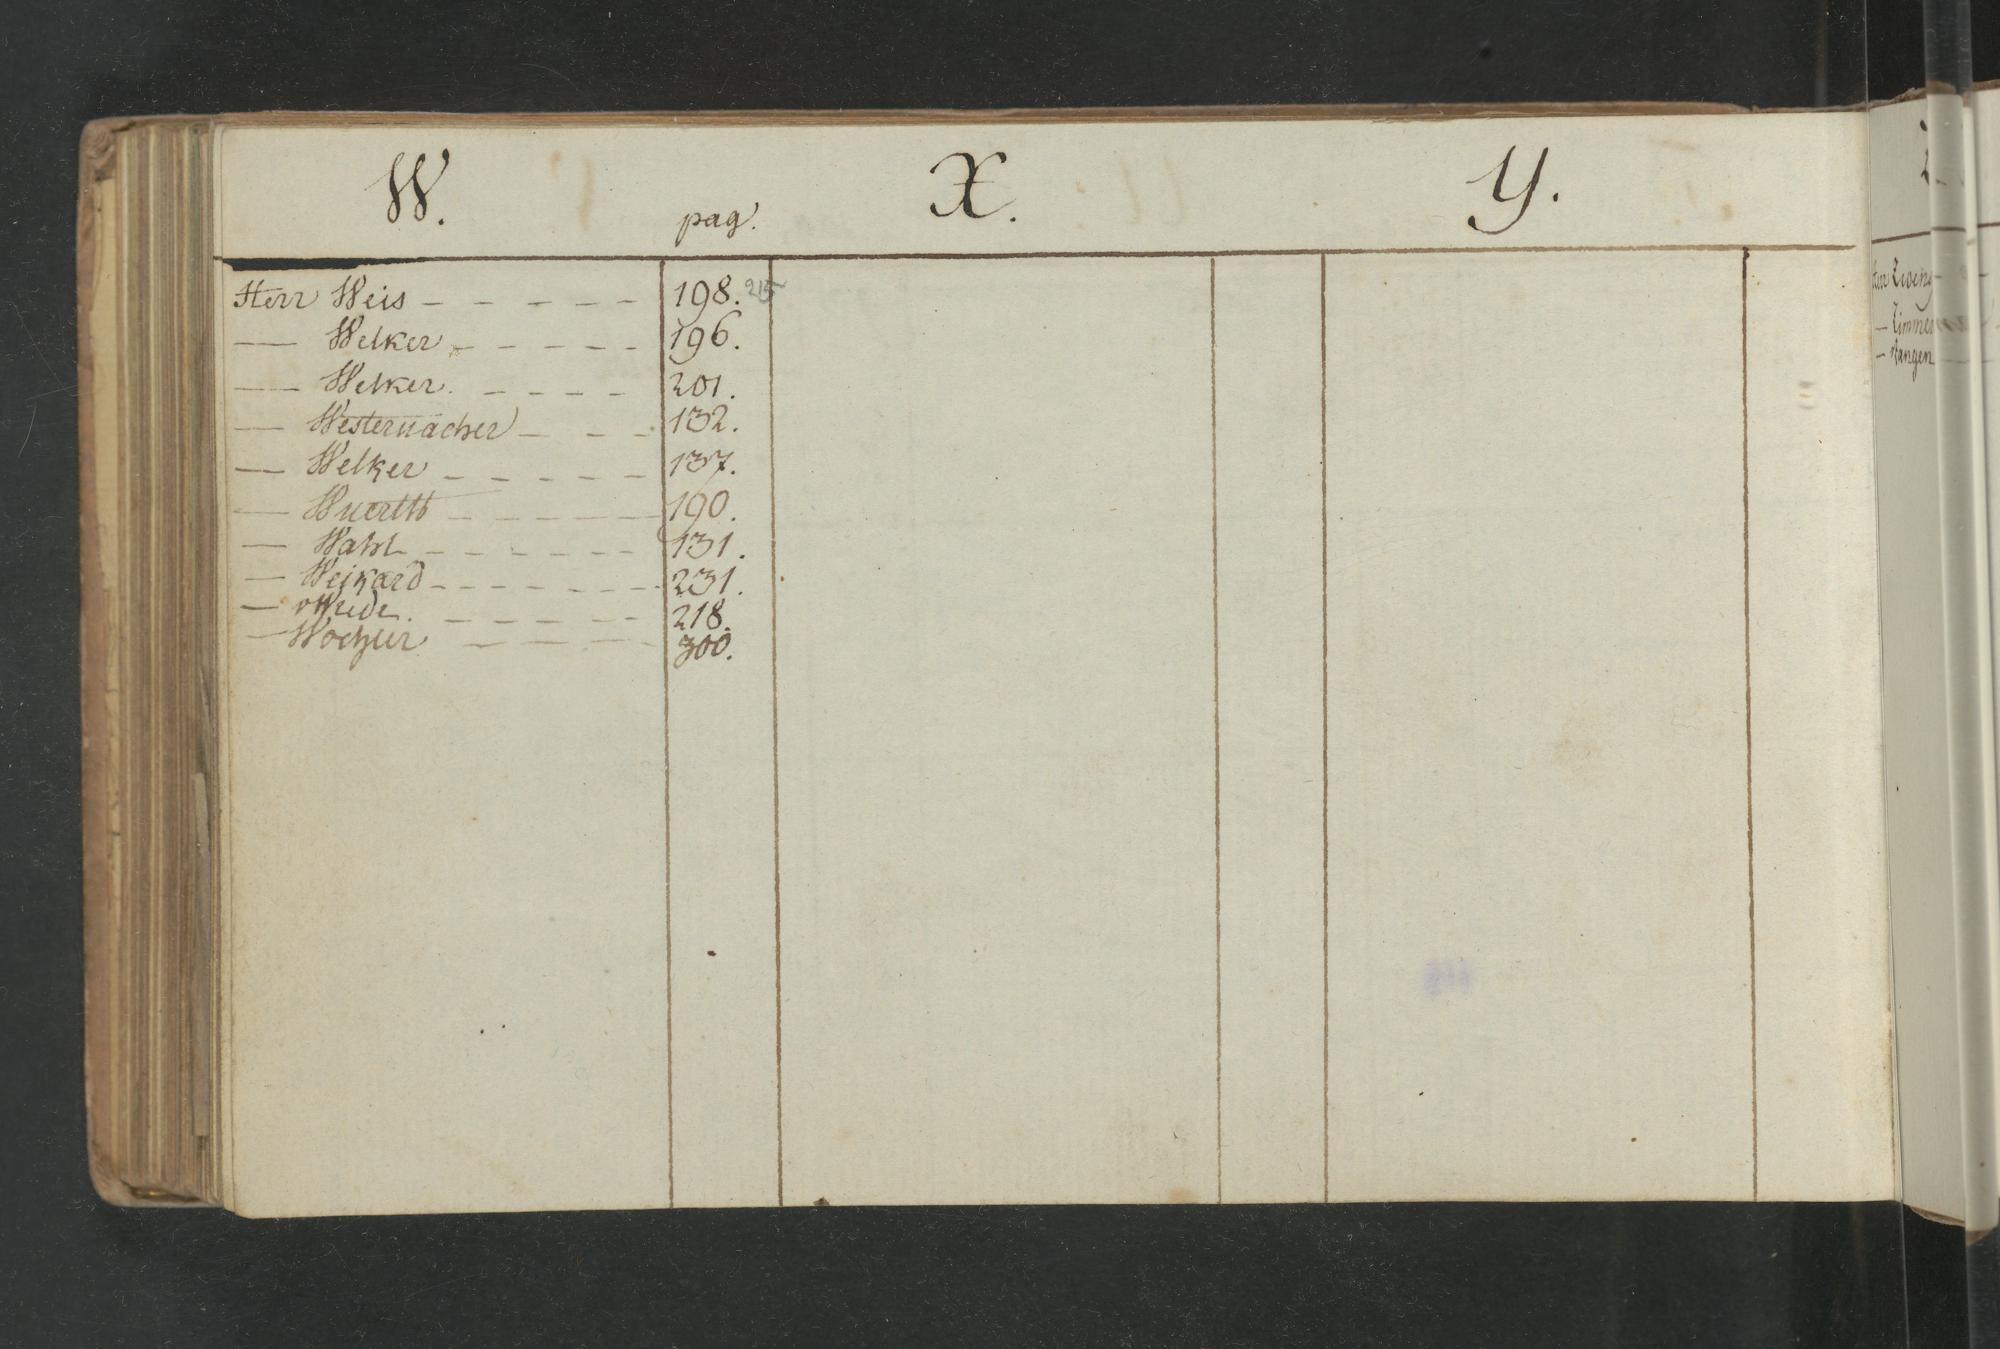 W. pag. X. Y.
Herr Weis - - - - - - 198. 215
— Welker - - - - - 196.
— Welker. - - - - 201.
— Westernacher - - - 132.
— Welker - - - - - 137.
— Wuerth - - - - - 190.
— Wahl - - - - - - 131.
— Weikard - - - - - - 231.
— - - - - - 218.
— - - - - 300.
Herr Zweng
— Zimmer
— Zangen